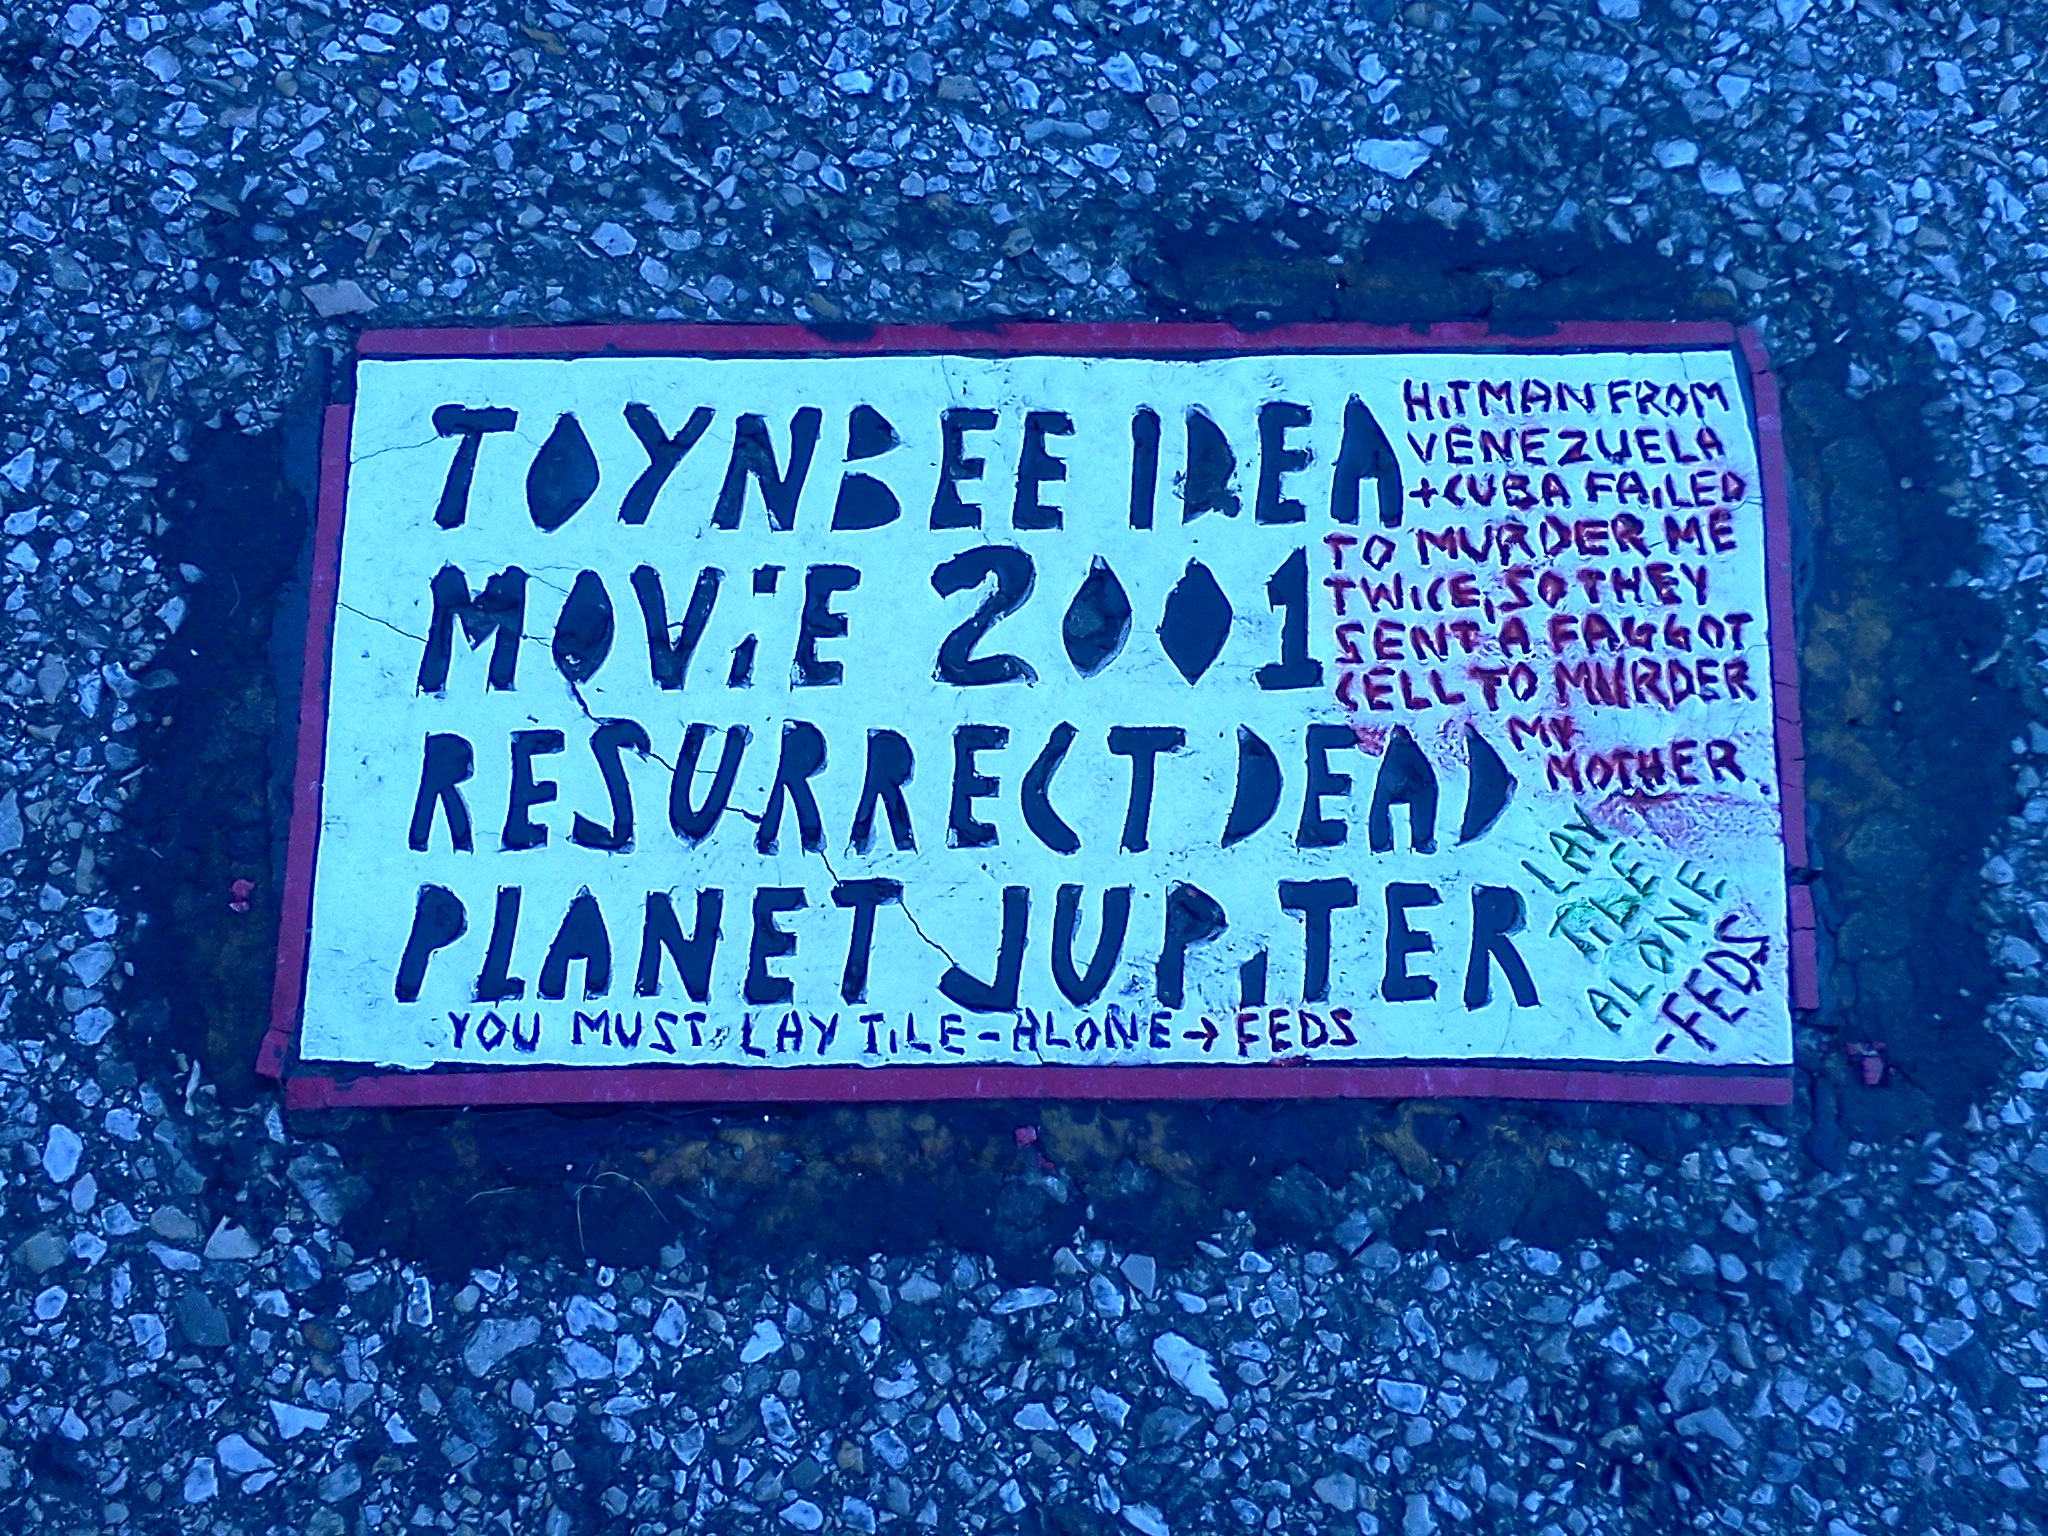 TOYNBEE IDEA
MOViE 2001
RESURRECT DEAD
PLANET JUPiTER
YOU MUST LAY TiLE-ALONE→ FEDS
HiTMAN FROM
VENEZUELA
+CUBA FAiLED
TO MURDER ME
TWiCE, SO THEY
SENT A FAGGOT
CELL TO MURDER
MY
MOTHER
LAY
TiLE
ALONE
-FEDS